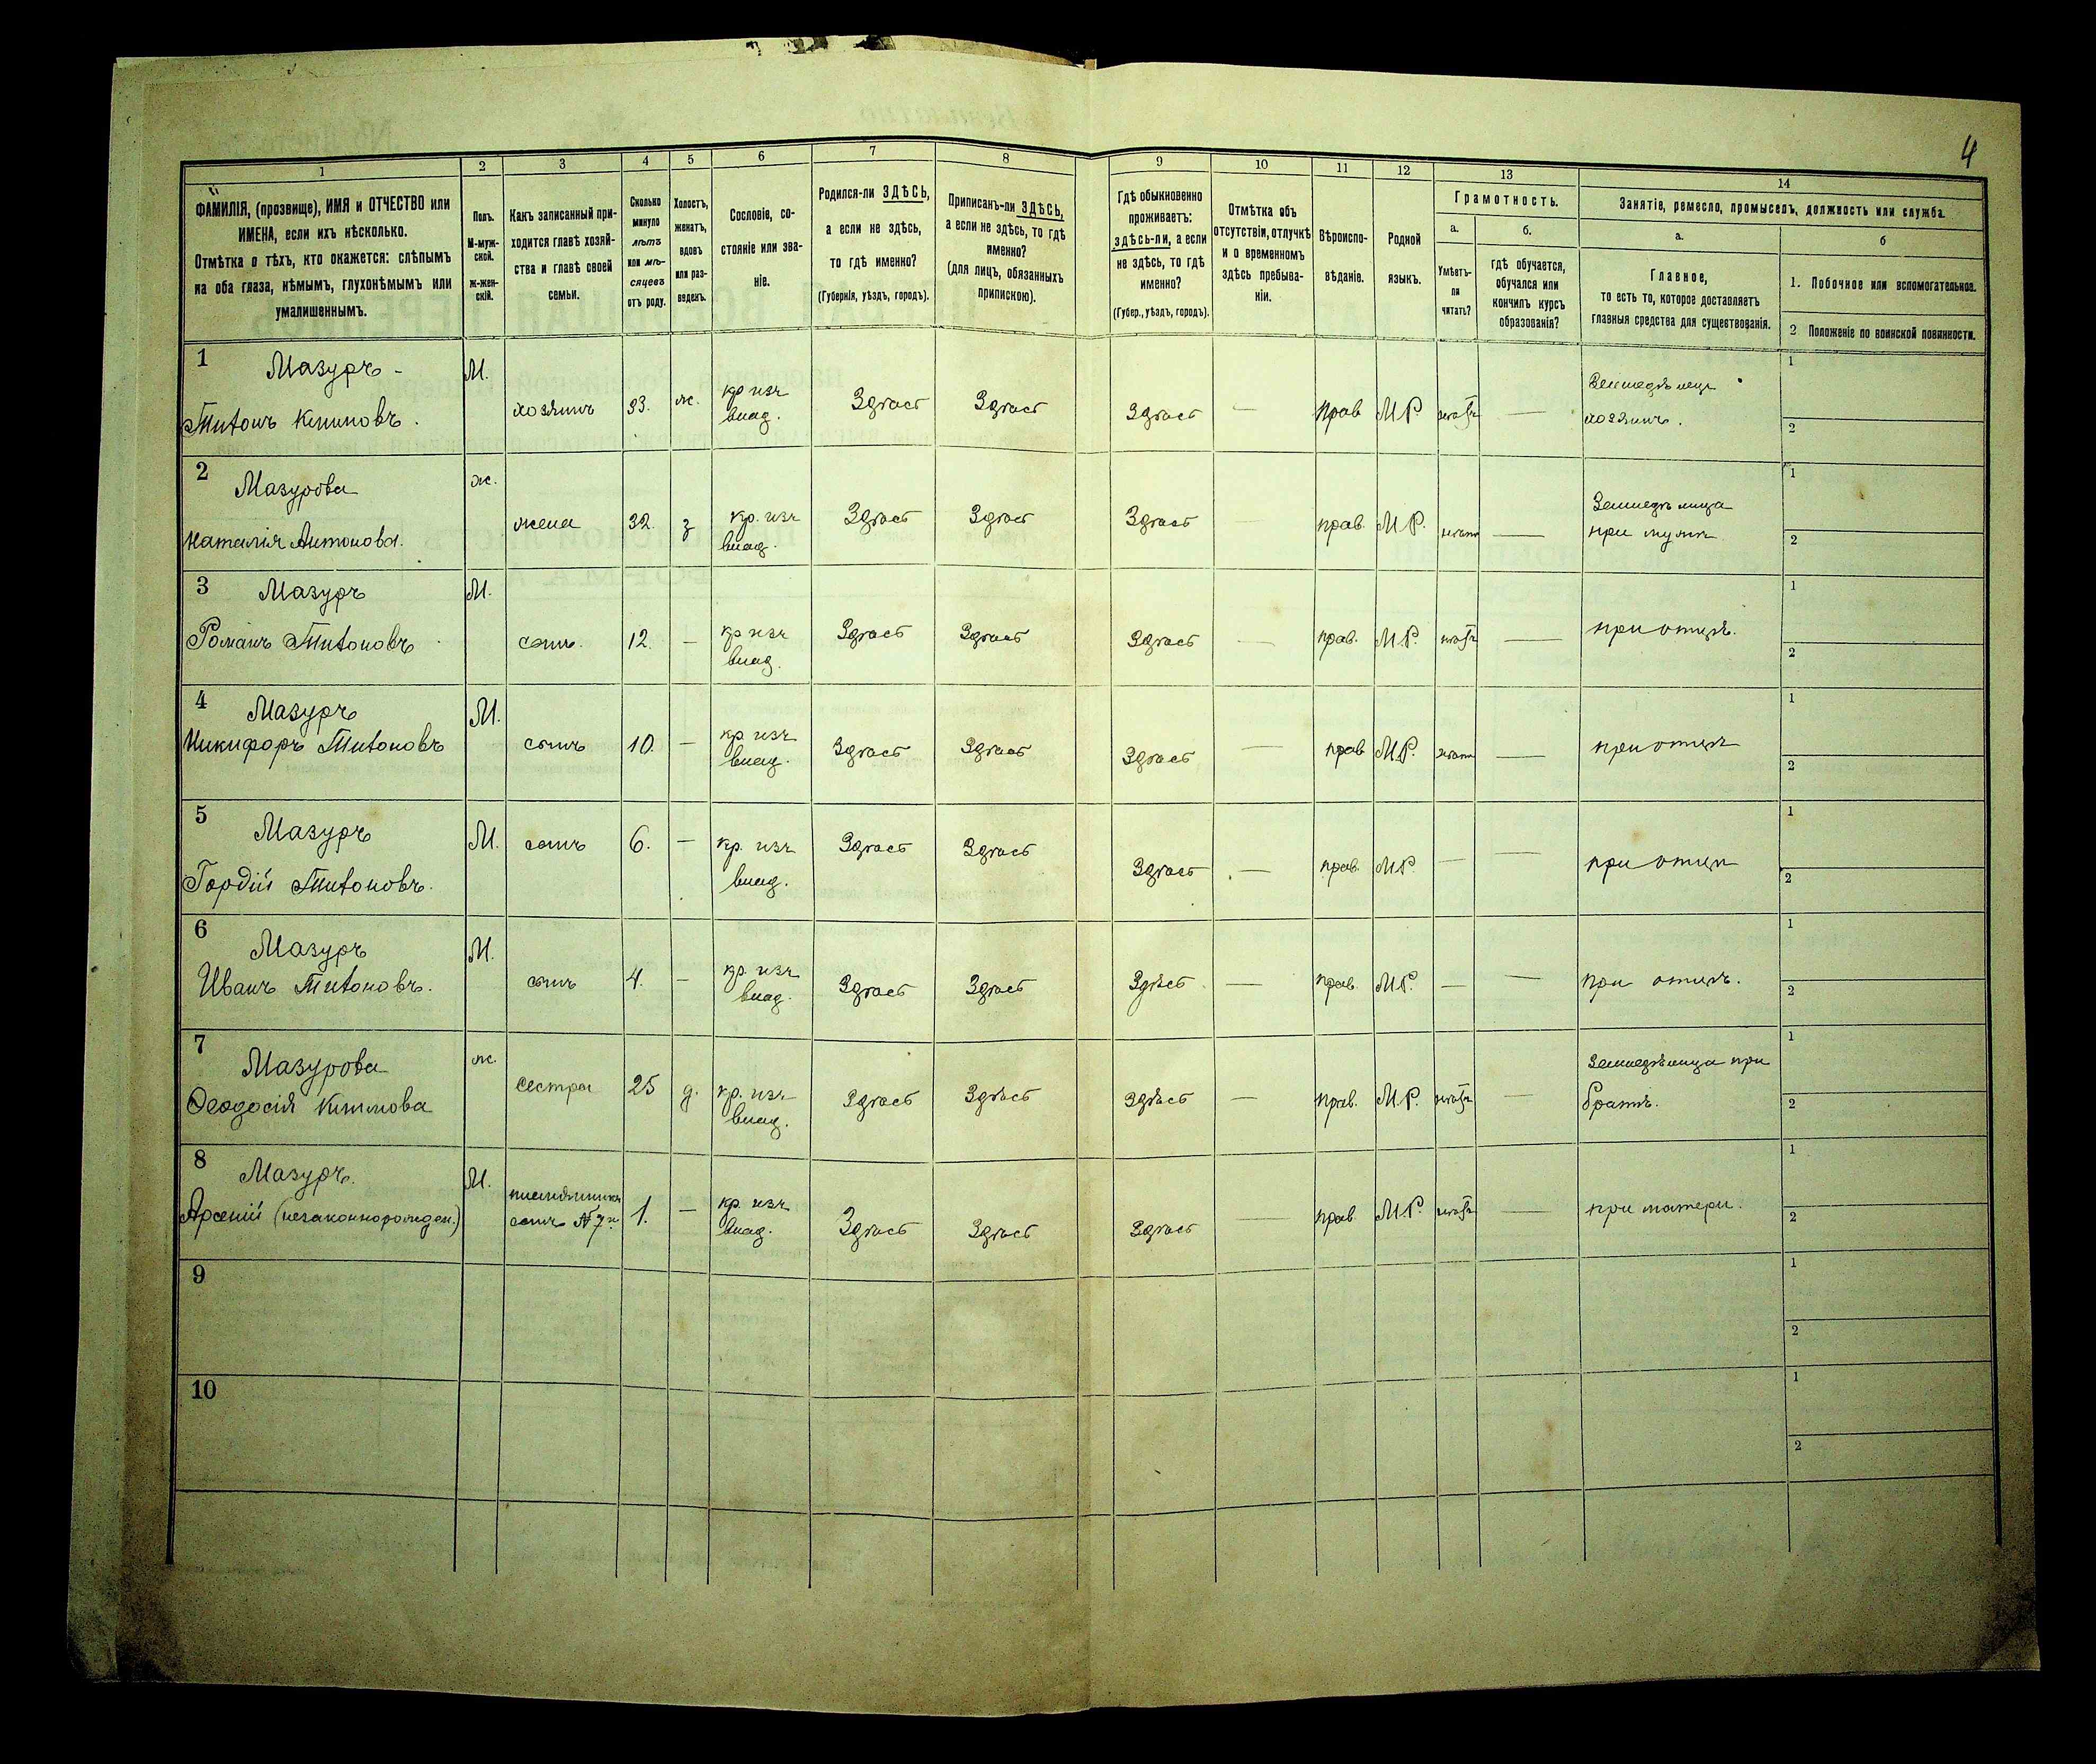 4
1
2
3
4
5
6
7
8
9
10
11
12
13
14
ФАМИЛІЯ, (прозвище), ИМЯ и ОТЧЕСТВО или
ИМЕНА, если ихъ нѣсколько.
Отмѣтка о тѣхъ, кто окажется: слѣпымъ
на оба глаза, нѣмымъ, глухонѣмымъ или
умалишеннымъ.
Полъ.
М-муж-
ской.
ж-жен-
скій.
Какъ записанный при-
ходится главѣ хозяй-
ства и главѣ своей
семьи.
Сколько
минуло
лѣтъ
или мѣ-
сяцевъ
отъ роду.
Холостъ,
женатъ,
вдовъ
или раз-
веденъ.
Сословіе, со-
стояніе или зва-
ніе.
Родился-ли ЗДѢСЬ,
а если не здѣсь,
то гдѣ именно?
(Губернія, уѣздъ, городъ).
Приписанъ-ли ЗДѢСЬ,
а если не здѣсь, то гдѣ
именно?
(для лицъ, обязанныхъ
припискою).
Гдѣ обыкновенно
проживаетъ:
здѣсь-ли, а если
не здѣсь, то гдѣ
именно?
(Губер., уѣздъ, городъ).
Отмѣтка объ
отсутствіи, отлучкѣ
и о временномъ
здѣсь пребыва-
ніи.
Вѣроиспо-
вѣданіе.
Родной
языкъ.
Грамотность.
а.
Умѣетъ-
ли
читать?
б.
гдѣ обучается,
обучался или
кончилъ курсъ
образованія?
Занятіе, ремесло, промыселъ, должность или служба.
а.
Главное,
то есть то, которое доставляетъ
главныя средства для существованія.
б
1. Побочное или вспомогательное.
2 Положеніе по воинской повинности.
1
Мазуръ -
Титонъ Климовъ.
М.
хозяинъ
33.
ж.
кр изъ
влад.
Здѣсь
Здѣсь
Здѣсь
—
прав
М.Р.
нѣтъ
—
Земледѣлецъ
хозяинъ.
1
2
2
Мазурова
Наталія Антонова.
ж.
жена
32.
з
кр. изъ
влад.
Здѣсь
Здѣсь
Здѣсь
прав.
М.Р.
нѣтъ
—
при мужѣ
1
2
3
Мазуръ
Романъ Титоновъ
М.
сынъ.
12.
—
кр изъ
влад.
Здѣсь
Здѣсь
Здѣсь
—
прав.
М.Р.
нѣтъ
—
при отцѣ.
1
2
4
Мазуръ
Никифоръ Титоновъ
М.
сынъ
10.
—
кр изъ
влад.
Здѣсь
Здѣсь
Здѣсь
—
прав
М.Р.
нѣтъ
—
при отцѣ
1
2
5
Мазуръ
Гордій Титоновъ.
М.
сынъ
6.
—
кр. изъ
влад.
Здѣсь
Здѣсь
Здѣсь
—
прав.
М.Р.
—
—
при отцѣ
1
2
6
Мазуръ
Иванъ Титоновъ.
М.
сынъ
4.
—
кр. изъ
влад.
Здѣсь
Здѣсь
Здѣсь
—
прав.
М.Р.
—
—
при отцѣ.
1
2
7
Мазурова
Ѳеодосія Климова
ж.
сестра
25
д.
кр. изъ
влад.
Здѣсь
Здѣсь
здѣсь
—
прав.
М.Р.
нѣтъ
—
при
братѣ.
1
2
8
Мазуръ.
Арсеній (незаконнорожден.)
М.
племянникъ
сынъ №7й
1.
—
кр. изъ
влад.
Здѣсь
Здѣсь
Здѣсь
—
прав.
М.Р.
нѣтъ
—
при матери.
1
2
9
1
2
10
1
2